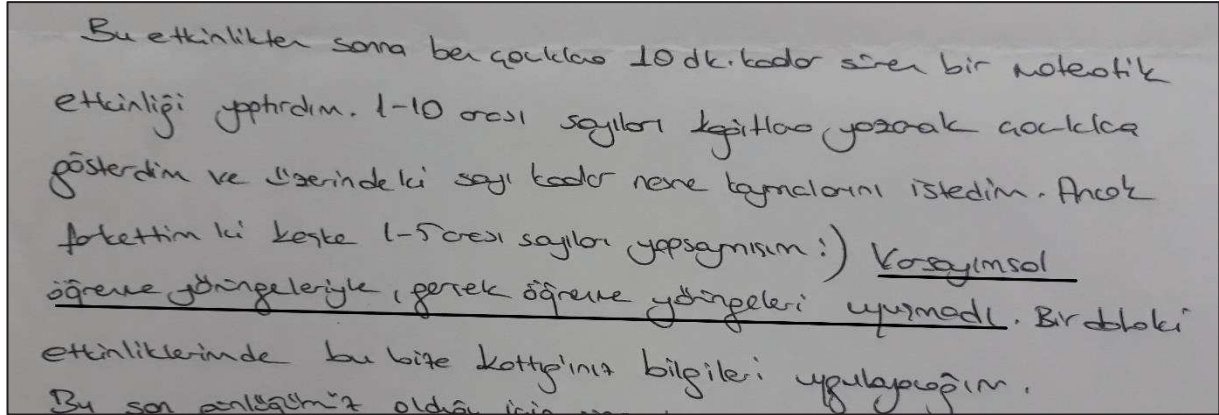 Bu etkinlikten sonra ben çocuklara 10 dk. kadar süren bir matematik
etkinliği yaptırdım. 1-10 arası sayıları kağıtlara yazarak çocuklara
gösterdim ve üzerindeki sayı kadar nesne koymalarını istedim. Ancak
farkettim ki keşke 1-5 arası sayıları yapsaymışım :) Varsayımsal
öğrenme yörüngeleriyle, gerçek öğrenme yörüngeleri uyuşmadı. Bir dahaki
etkinliklerimde bu bize kattığınız bilgileri uygulayacağım.
Bu son günlüğümüz olduğu için